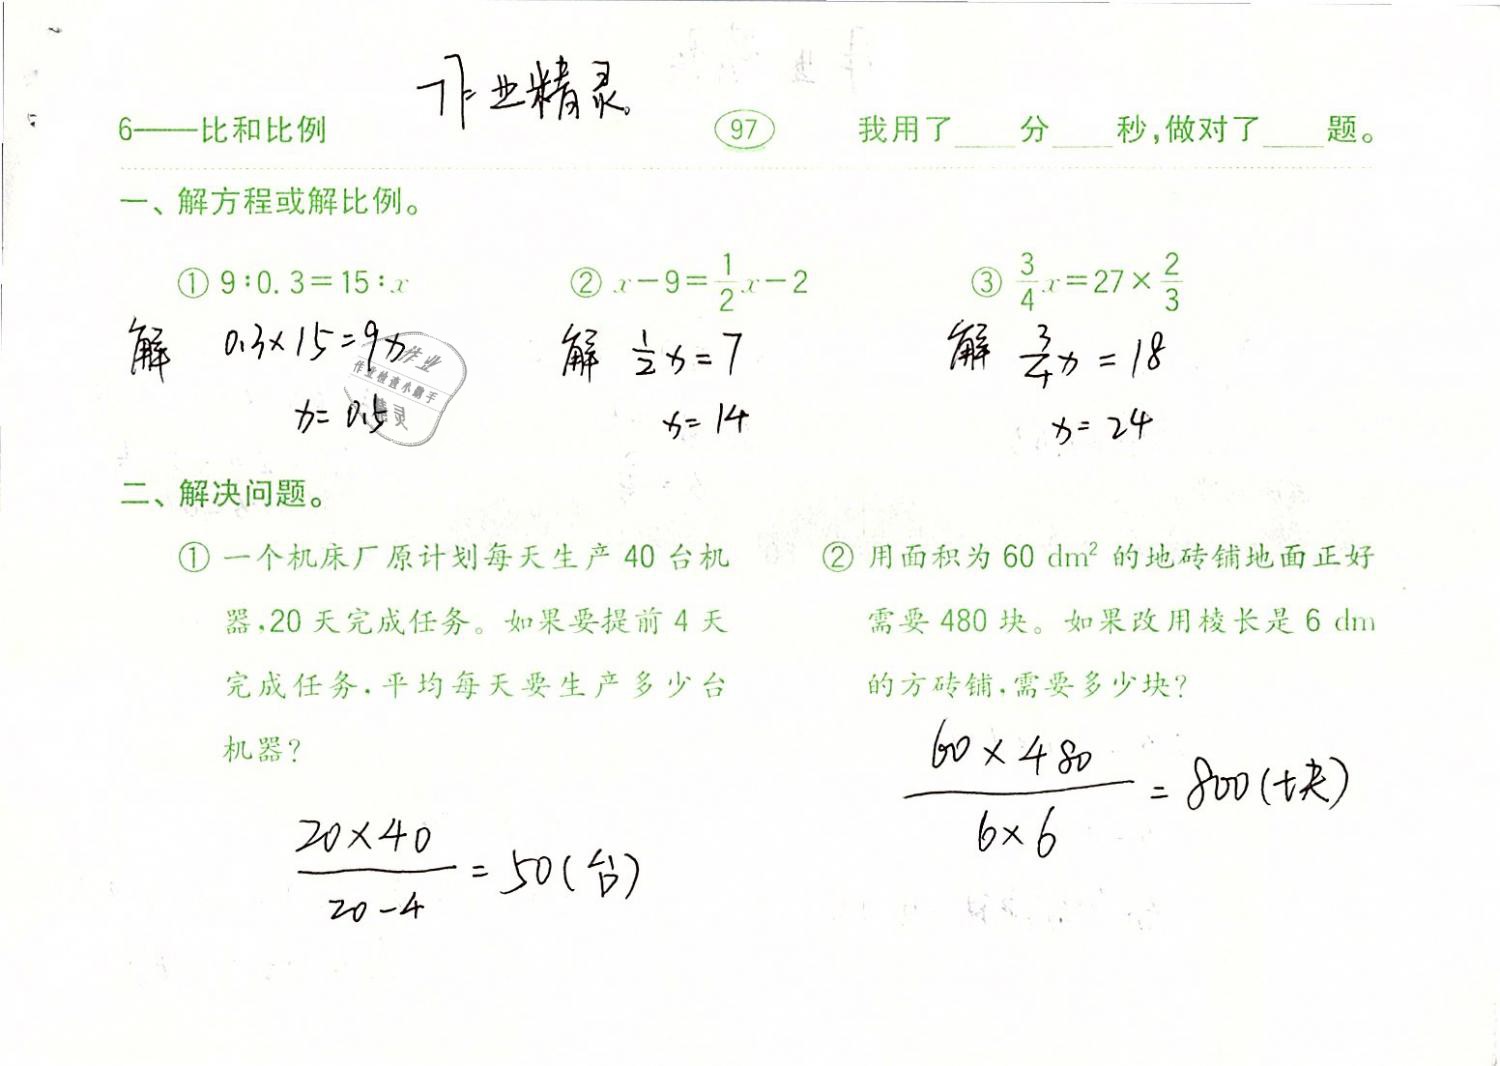 作业精灵
6——比和比例 97 我用了____分____秒,做对了____题。
一、解方程或解比例。
① 9∶0.3=15∶x ② x-9=1/2x-2 ③ 3/4x=27×2/3
解 0.3×15=9x 解 1/2x=7 解 3/4x=18
x=0.5 x=14 x=24
作业
作业检查小帮手
精灵
二、解决问题。
① 一个机床厂原计划每天生产 40 台机
器,20 天完成任务。如果要提前 4 天
完成任务,平均每天要生产多少台
机器?
20×40/20-4=50(台)
② 用面积为 60 dm² 的地砖铺地面正好
需要 480 块。如果改用棱长是 6 dm
的方砖铺,需要多少块?
60×480/6×6=800(块)